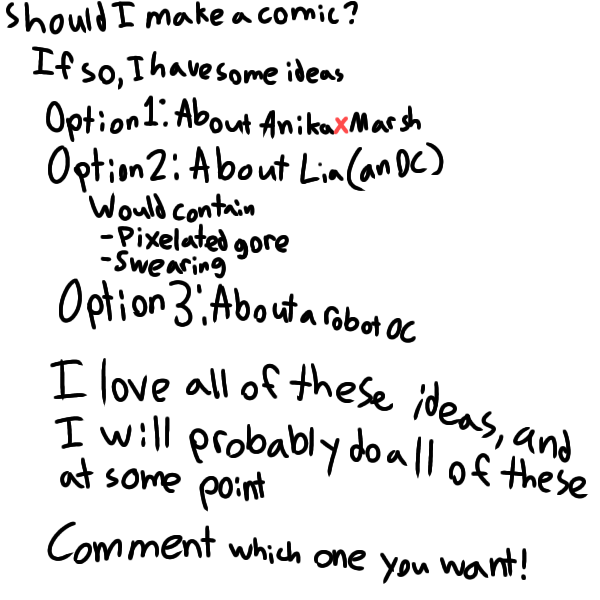 Should I make a comic?
If so, I have some ideas
Option 1: About Anika x Marsh
Option 2: About Lia (an OC)
Would contain
- Pixelated gore
- Swearing
Option 3: About a robot OC
I love all of these ideas, and
I will probably do all of these
at some point
Comment which one you want!